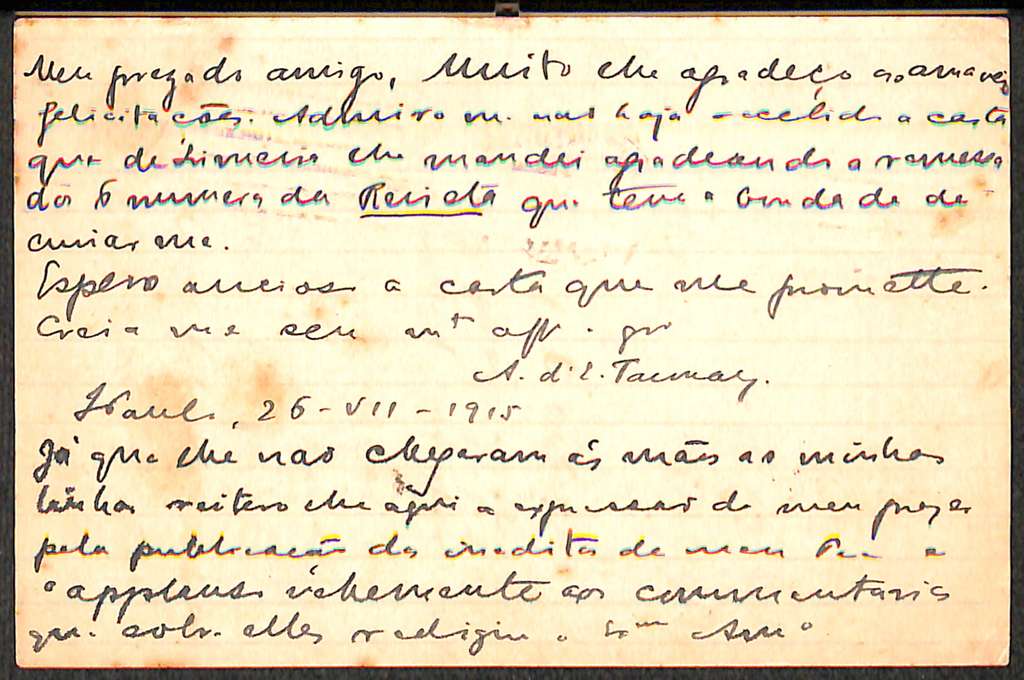 Meu prezado amigo, Muito lhe agradeço as amaveis
felicitações. Admiro-me não haja recebido a carta
que de Limeira lhe mandei agradecendo a remessa
dos numeros da Revista que teve a bondade de
enviar-me.
Espero ancioso a carta que me promette.
Creia-me seu mto affo. gro
A. d'E. Taunay.
S Paulo, 26-VII-1915
Já que lhe não chegaram ás mãos as minhas
linhas reitero-lhe aqui a expressão de meu prazer
pela publicação dos ineditos de meu Pae e
o applauso vehemente aos commentarios
que sobre elles redigiu o Exmo Amo